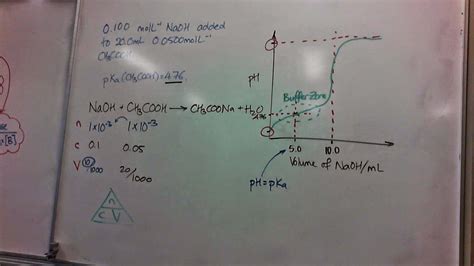 0.100 molL⁻¹ NaOH added
to 20.0mL 0.0500molL⁻¹
CH₃COOH
pKa(CH₃COOH)=4.76
NaOH + CH₃COOH → CH₃COONa + H₂O
n 1x10⁻³ 1x10⁻³
c 0.1 0.05
V 10/1000 20/1000
n
C V
pH
Buffer Zone
4.76
5.0 10.0
Volume of NaOH/mL
pH=pKa
[B]